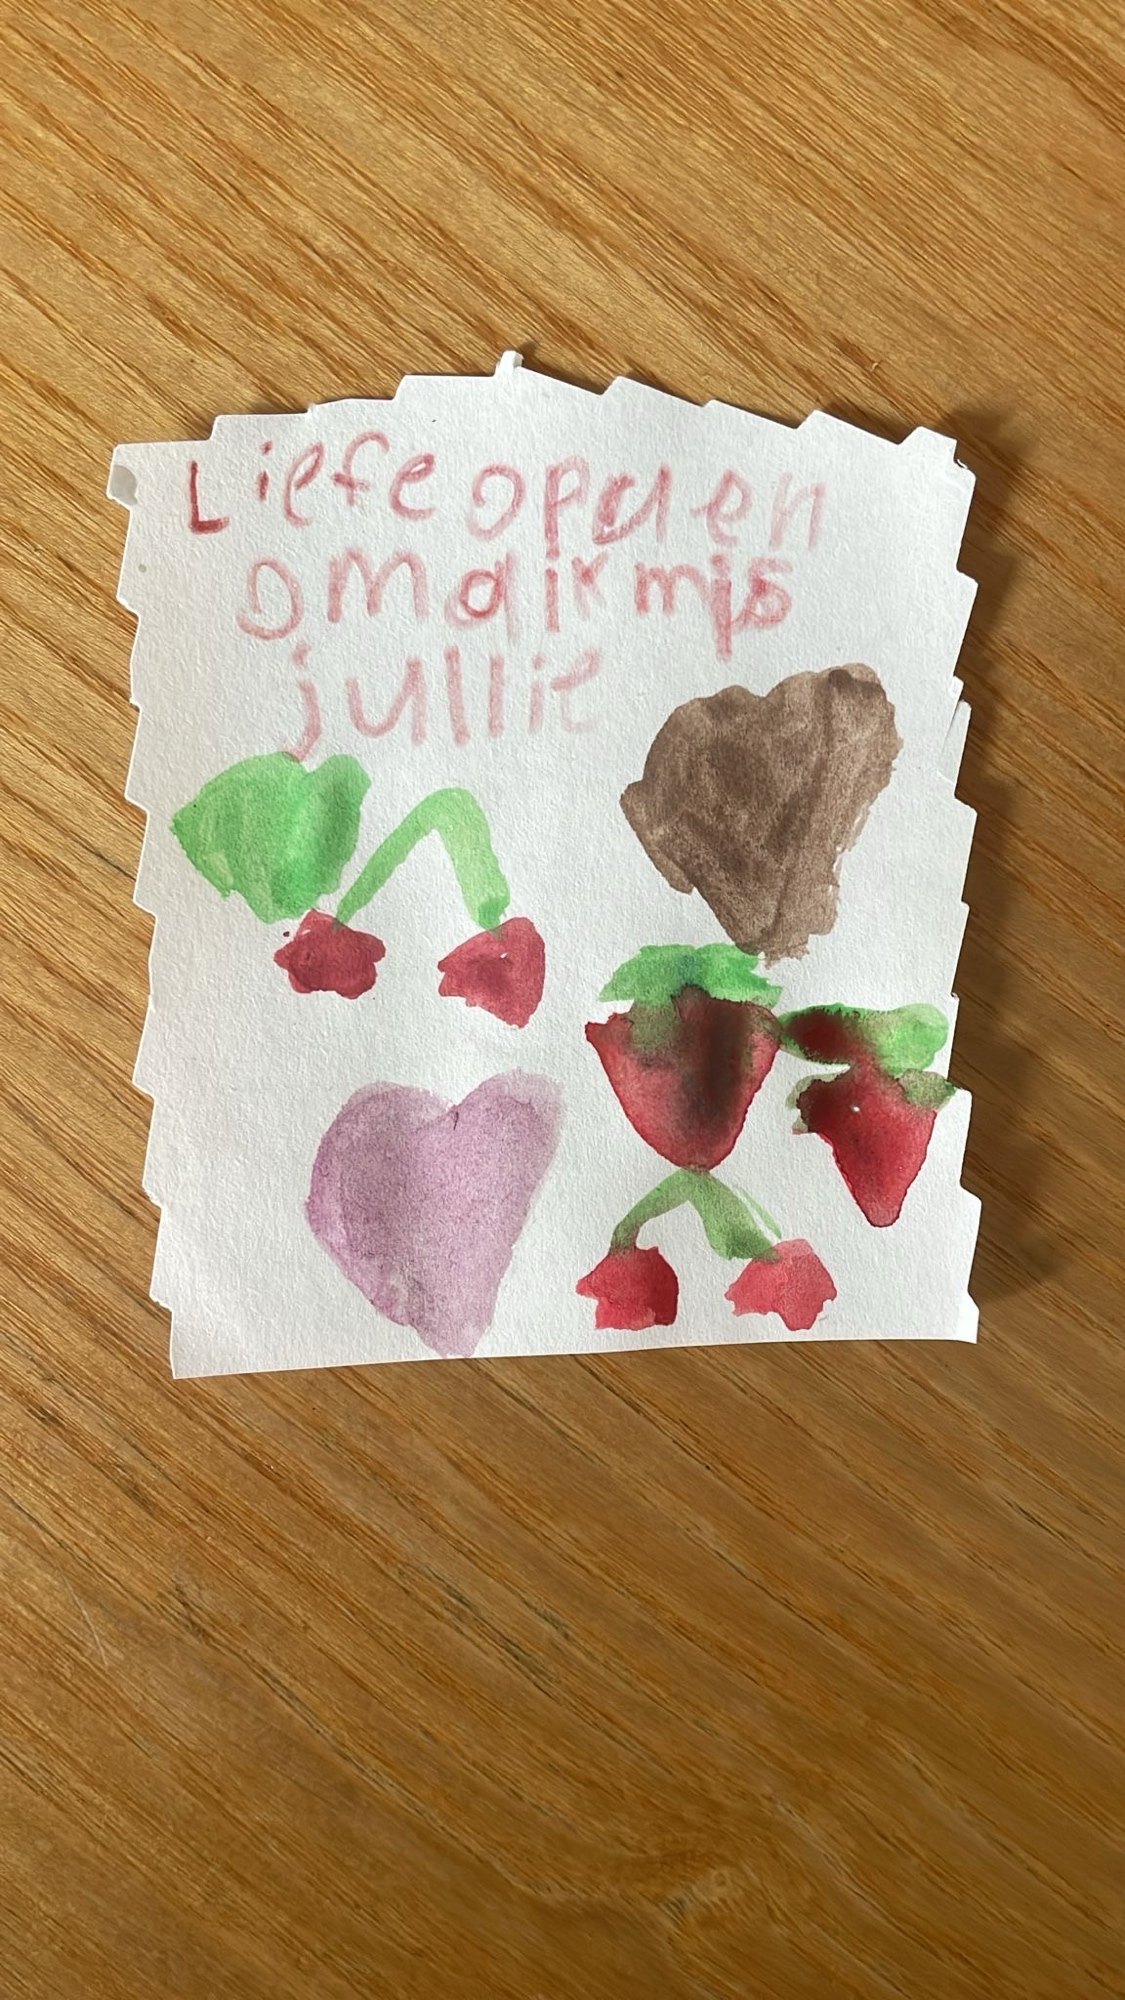 Liefe opa en
oma ik mis
jullie